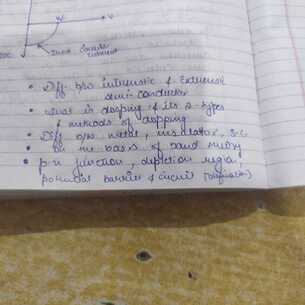 V
DC
• Diff b/w intrinsic & Extrinsic
semi conductor
• What is dopping & its 2-types
& methods of dopping
• Diff b/w metal, insulator, S.C
on the basis of band theory
• p-n junction, depletion region,
potential barrier & circuit